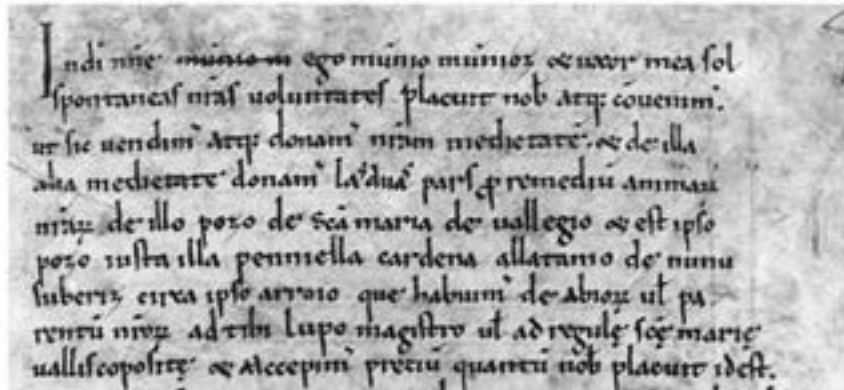 Indi nñe munio m ego munio munioz & uxor mea sol
spontaneas nr̃as uoluntates placuit nob̃ atq; cõuenim᷒.
ut sic uendim᷒ atq; donam᷒ nr̃am medietatẽ. & de illa
alia medietate donam᷒ pars ꝓ remediũ animaꝝ
nr̃aꝝ de illo pozo de sc̃a maria de uallegio & est ipso
pozo iusta illa penniella cardena allatanio de nunu
suberiz circa ipso arroio que habuim᷒ de abioꝝ ul̃ pa
rentũ nr̃oꝝ ad tibi lupo magistro ul̃ ad regulę scę̃ marię
uallis copositę & accepim᷒ preciũ quantũ nob̃ placuit id ẽst.